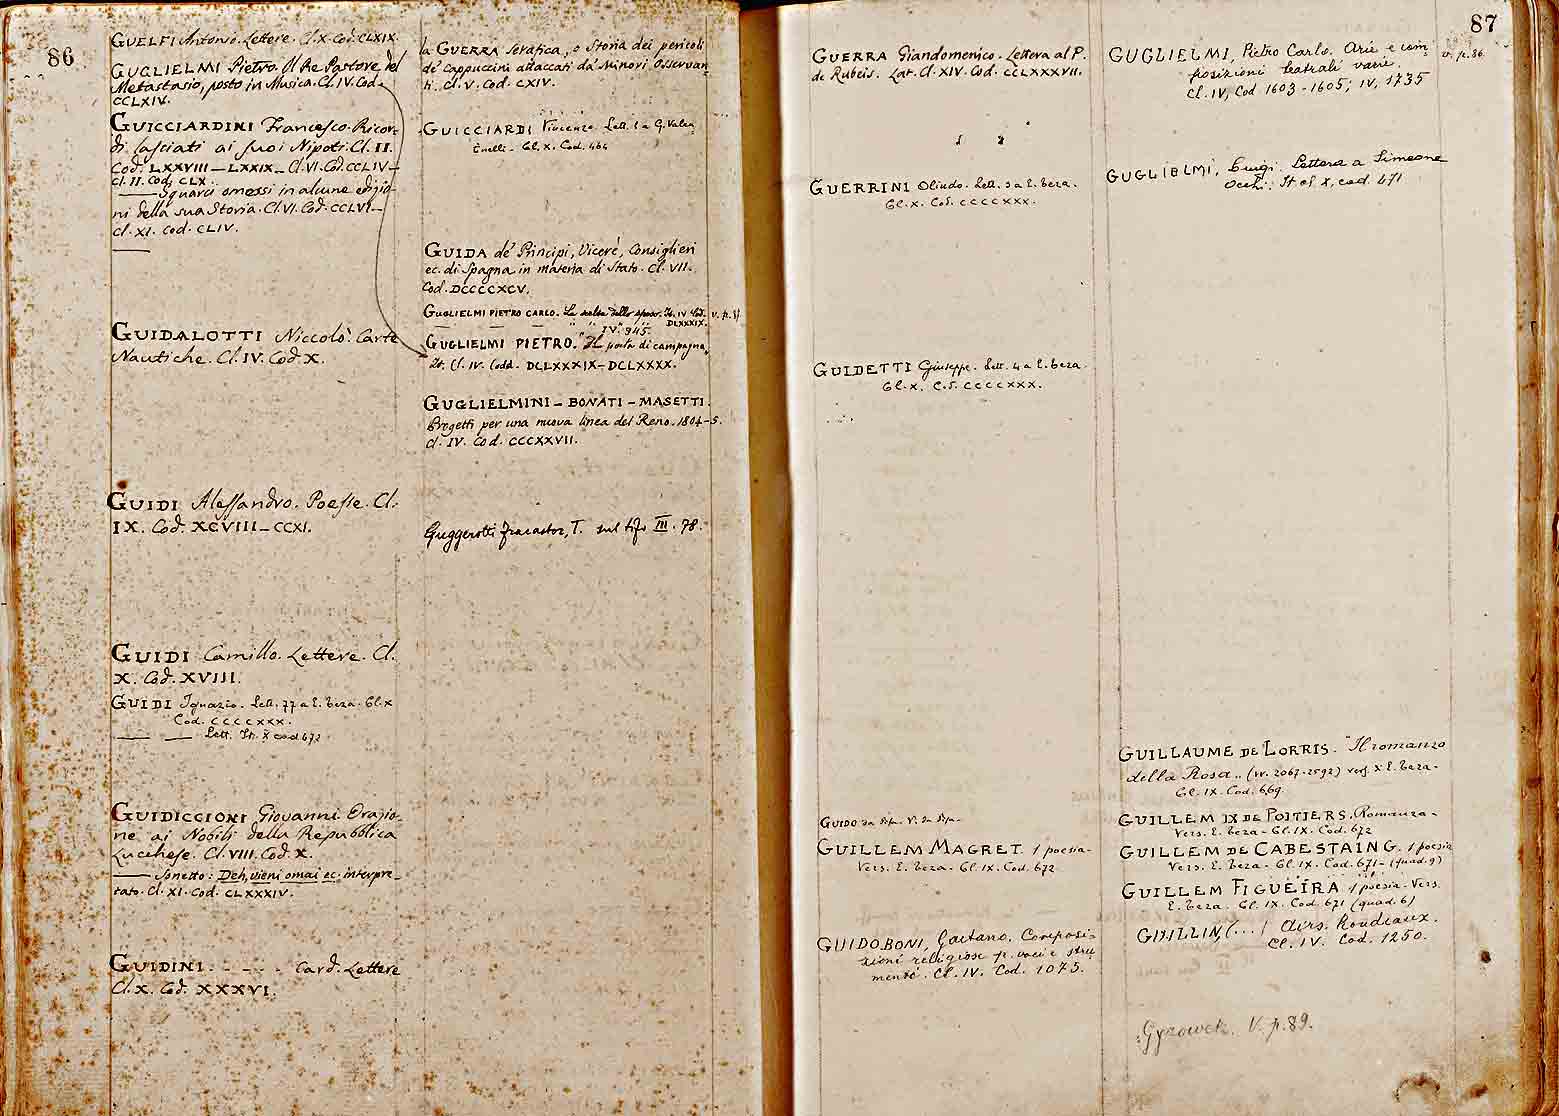 86
GUELFI Antonio. Lettere. Cl. X. Cod. CLXIX.
GUGLIELMI Pietro. Il Re Pastore del
Metastasio, posto in Musica. Cl. IV. Cod.
CCLXIV.
GUICCIARDINI Francesco. Ricor-
di lasciati ai suoi Nipoti. Cl. II.
Cod. LXXVIII — LXXIX — Cl. VI. Cod. CCLIV —
Cl. II. Cod. CLX.
— Squarci omessi in alcune edizio-
ni della sua Storia. Cl. VI. Cod. CCLVI —
Cl. XI. Cod. CLIV.
GUIDALOTTI Niccolò. Carte
Nautiche. Cl. IV. Cod. X.
GUIDI Alessandro. Poesie. Cl.
IX. Cod. XCVIII — CCXI.
GUIDI Camillo. Lettere. Cl.
X. Cod. XVIII.
GUIDI Ignazio. Lett. 77 a E. Teza. Cl. X
Cod. CCCCXXX.
— — Lett. It. X cod 672
GUIDICCIONI Giovanni. Orazio-
ne ai Nobili della Repubblica
Lucchese. Cl. VIII. Cod. X.
— Sonetto: Deh, vieni omai ec. interpre-
tato. Cl. XI. Cod. CLXXXIV.
GUIDINI. - - - . Card. Lettere
Cl. X. Cod. XXXVI.
la GUERRA Serafica, o Storia dei pericoli
de' Cappuccini attaccati da' Minori Osservan-
ti. Cl. V. Cod. CXIV.
GUICCIARDI Vincenzo. Lett. 1 a G. Valen
tinelli. Cl. X. Cod. 464
GUIDA de' Principi, Vicerè, Consiglieri
ec. di Spagna in materia di Stato. Cl. VII.
Cod. DCCCCXCV.
GUGLIELMI PIETRO CARLO. La scelta dello sposo. It. IV Cod. v. p. 87
DLXXXIX.
— — " " IV " 945.
GUGLIELMI PIETRO. "Il poeta di campagna"
It. Cl. IV. Codd. DCLXXXIX — DCLXXXX.
GUGLIELMINI — BONATI — MASETTI.
Progetti per una nuova linea del Reno. 1804-5.
Cl. IV. Cod. CCCXXVII.
Fracastor, T. sul III. 78.
87
GUERRA Giandomenico. Lettera al P.
de Rubeis. Lat. Cl. XIV. Cod. CCLXXXVII.
GUERRINI Olindo. Lett. 3 a E. Teza.
Cl. X. Cod. CCCCXXX.
GUIDETTI Giuseppe. Lett. 4 a E. Teza.
Cl. X. C.d. CCCCXXX.
GUIDO da Pisa. V. da Pisa.
GUILLEM MAGRET. 1 poesia -
Vers. E. Teza. Cl. IX. Cod. 672
GUIDOBONI, Gaetano. Composi-
zioni religiose p. voci e stru
mento. Cl. IV. Cod. 1075.
GUGLIELMI, Pietro Carlo. Arie e com- v. p. 86
posizioni teatrali varie.
Cl. IV, Cod. 1603 - 1605; IV, 1735
GUGLIELMI, Luigi. Lettera a Simeone
Occhi. It cl X, cod. 471
GUILLAUME DE LORRIS. "Il romanzo
della Rosa" (vv. 2067-2592) vers. X E. Teza.
Cl. IX. Cod. 669.
GUILLEM IX DE POITIERS. Romanza -
Vers. E. Teza - Cl. IX. Cod. 672
GUILLEM DE CABESTAING. 1 poesia
Vers. E. Teza. Cl. IX. Cod. 671 - (quad. 9)
GUILLEM FIGUEIRA 1 poesia. Vers.
E. Teza. Cl. IX. Cod. 671 (quad. 6)
GUILLIN, (...) Airs. Roudeaux.
Cl. IV. Cod. 1250.
Gyrowetz. V. p. 89.